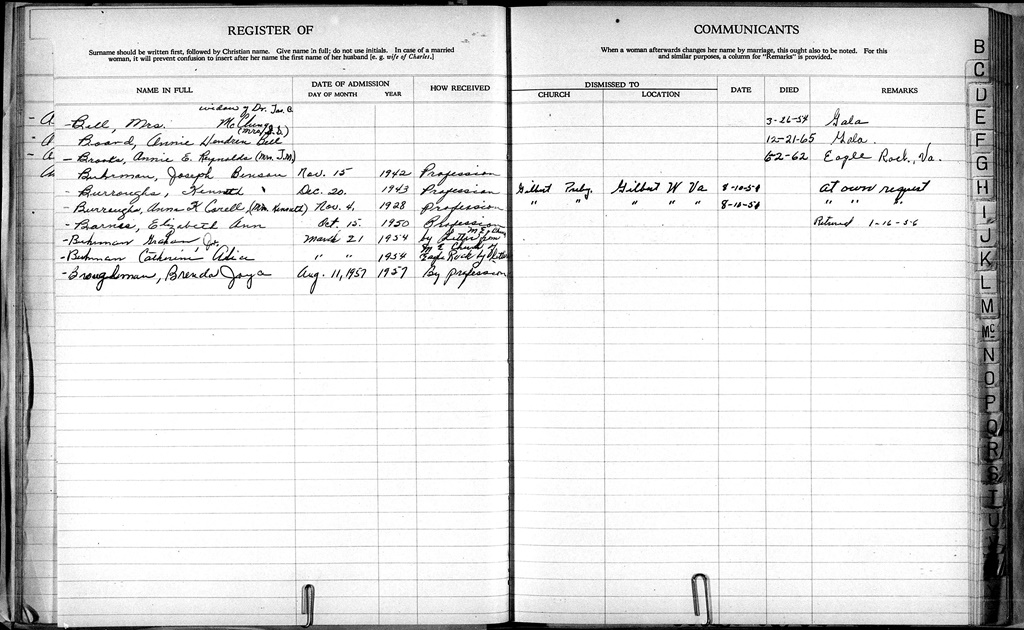 REGISTER OF
Surname should be written first, followed by Christian name. Give name in full; do not use initials. In case of a married
woman, it will prevent confusion to insert after her name the first name of her husband [e. g. wife of Charles.]
NAME IN FULL
DATE OF ADMISSION
DAY OF MONTH YEAR
HOW RECEIVED
widow of Dr. Jas. B.
A - Bell, Mrs. McClung
(Mrs. J. D.)
A Board, Annie Hendren Bell
- A - Brooks, Annie E. Reynolds (Mrs. J.M.)
Buhrman, Joseph Benson Nov. 15 1942 Profession
- Burroughs, Kenneth Dec. 20. 1943 Profession
- Burroughs, Anna K Carell (Mrs. Kenneth) Nov. 4, 1928 Profession
- Barnes, Elizabeth Ann Oct. 15. 1950 Profession
- Buhrman Graham Jr. March 21 1954 by Letter from
M. E. Church
- Buhrman Catherine Alice " " 1954 M E Church of
Eagle Rock by
- Broughman, Brenda Joya Aug. 11, 1957 1957 By profession
COMMUNICANTS
When a woman afterwards changes her name by marriage, this ought also to be noted. For this
and similar purposes, a column for "Remarks" is provided.
DISMISSED TO
CHURCH LOCATION
DATE
DIED
REMARKS
3-26-54 Gala
12-21-65 Gala.
5-2-62 Eagle Rock, Va.
Gilbert Presby. Gilbert W Va 8-10-50 at own request
" " " " " 8-10-50 " " "
Retired 1-16-56
B
C
D
E
F
G
H
I
J
K
L
M
Mc
N
O
P
Q
R
S
T
U